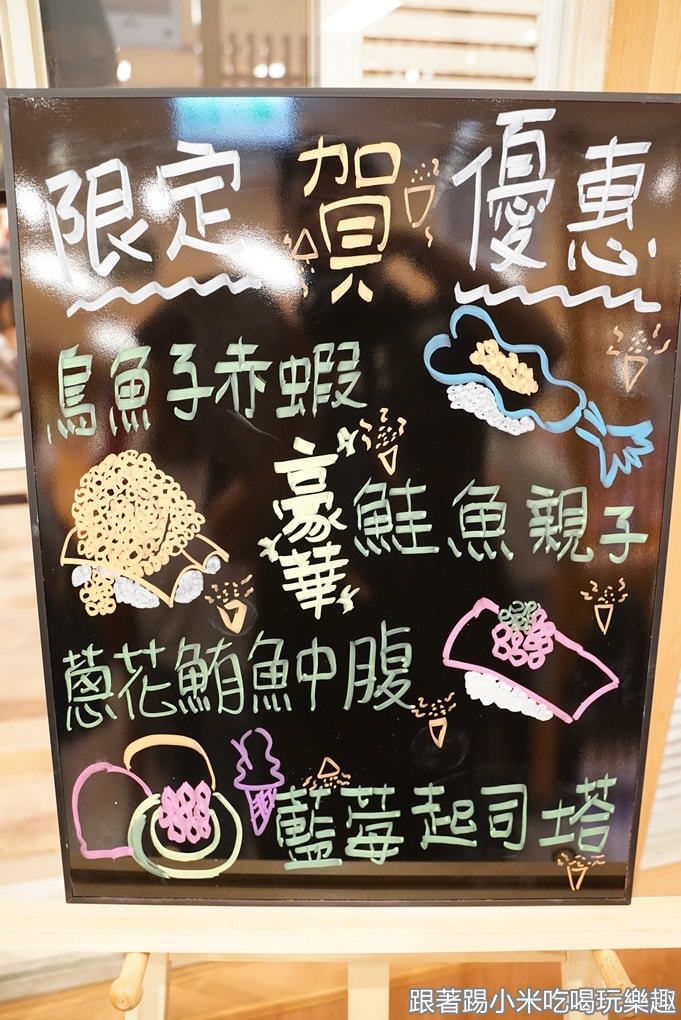 限定 賀 優惠
烏魚子赤蝦
豪華鮭魚親子
蔥花鮪魚中腹
藍莓起司塔
跟著踢小米吃喝玩樂趣